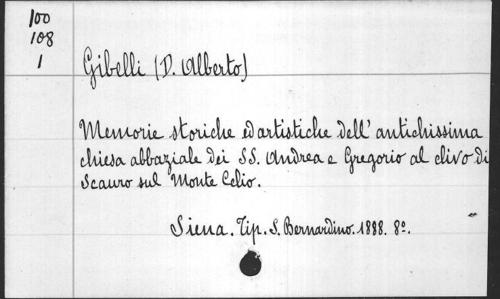 100
108
1
Gibelli (D. Alberto)
Memorie storiche ed artistiche dell' antichissima
chiesa abbaziale dei S.S. Andrea e Gregorio al clivo di
Scauro sul Monte Celio.
Siena. Tip. S. Bernardino. 1888. 8º.